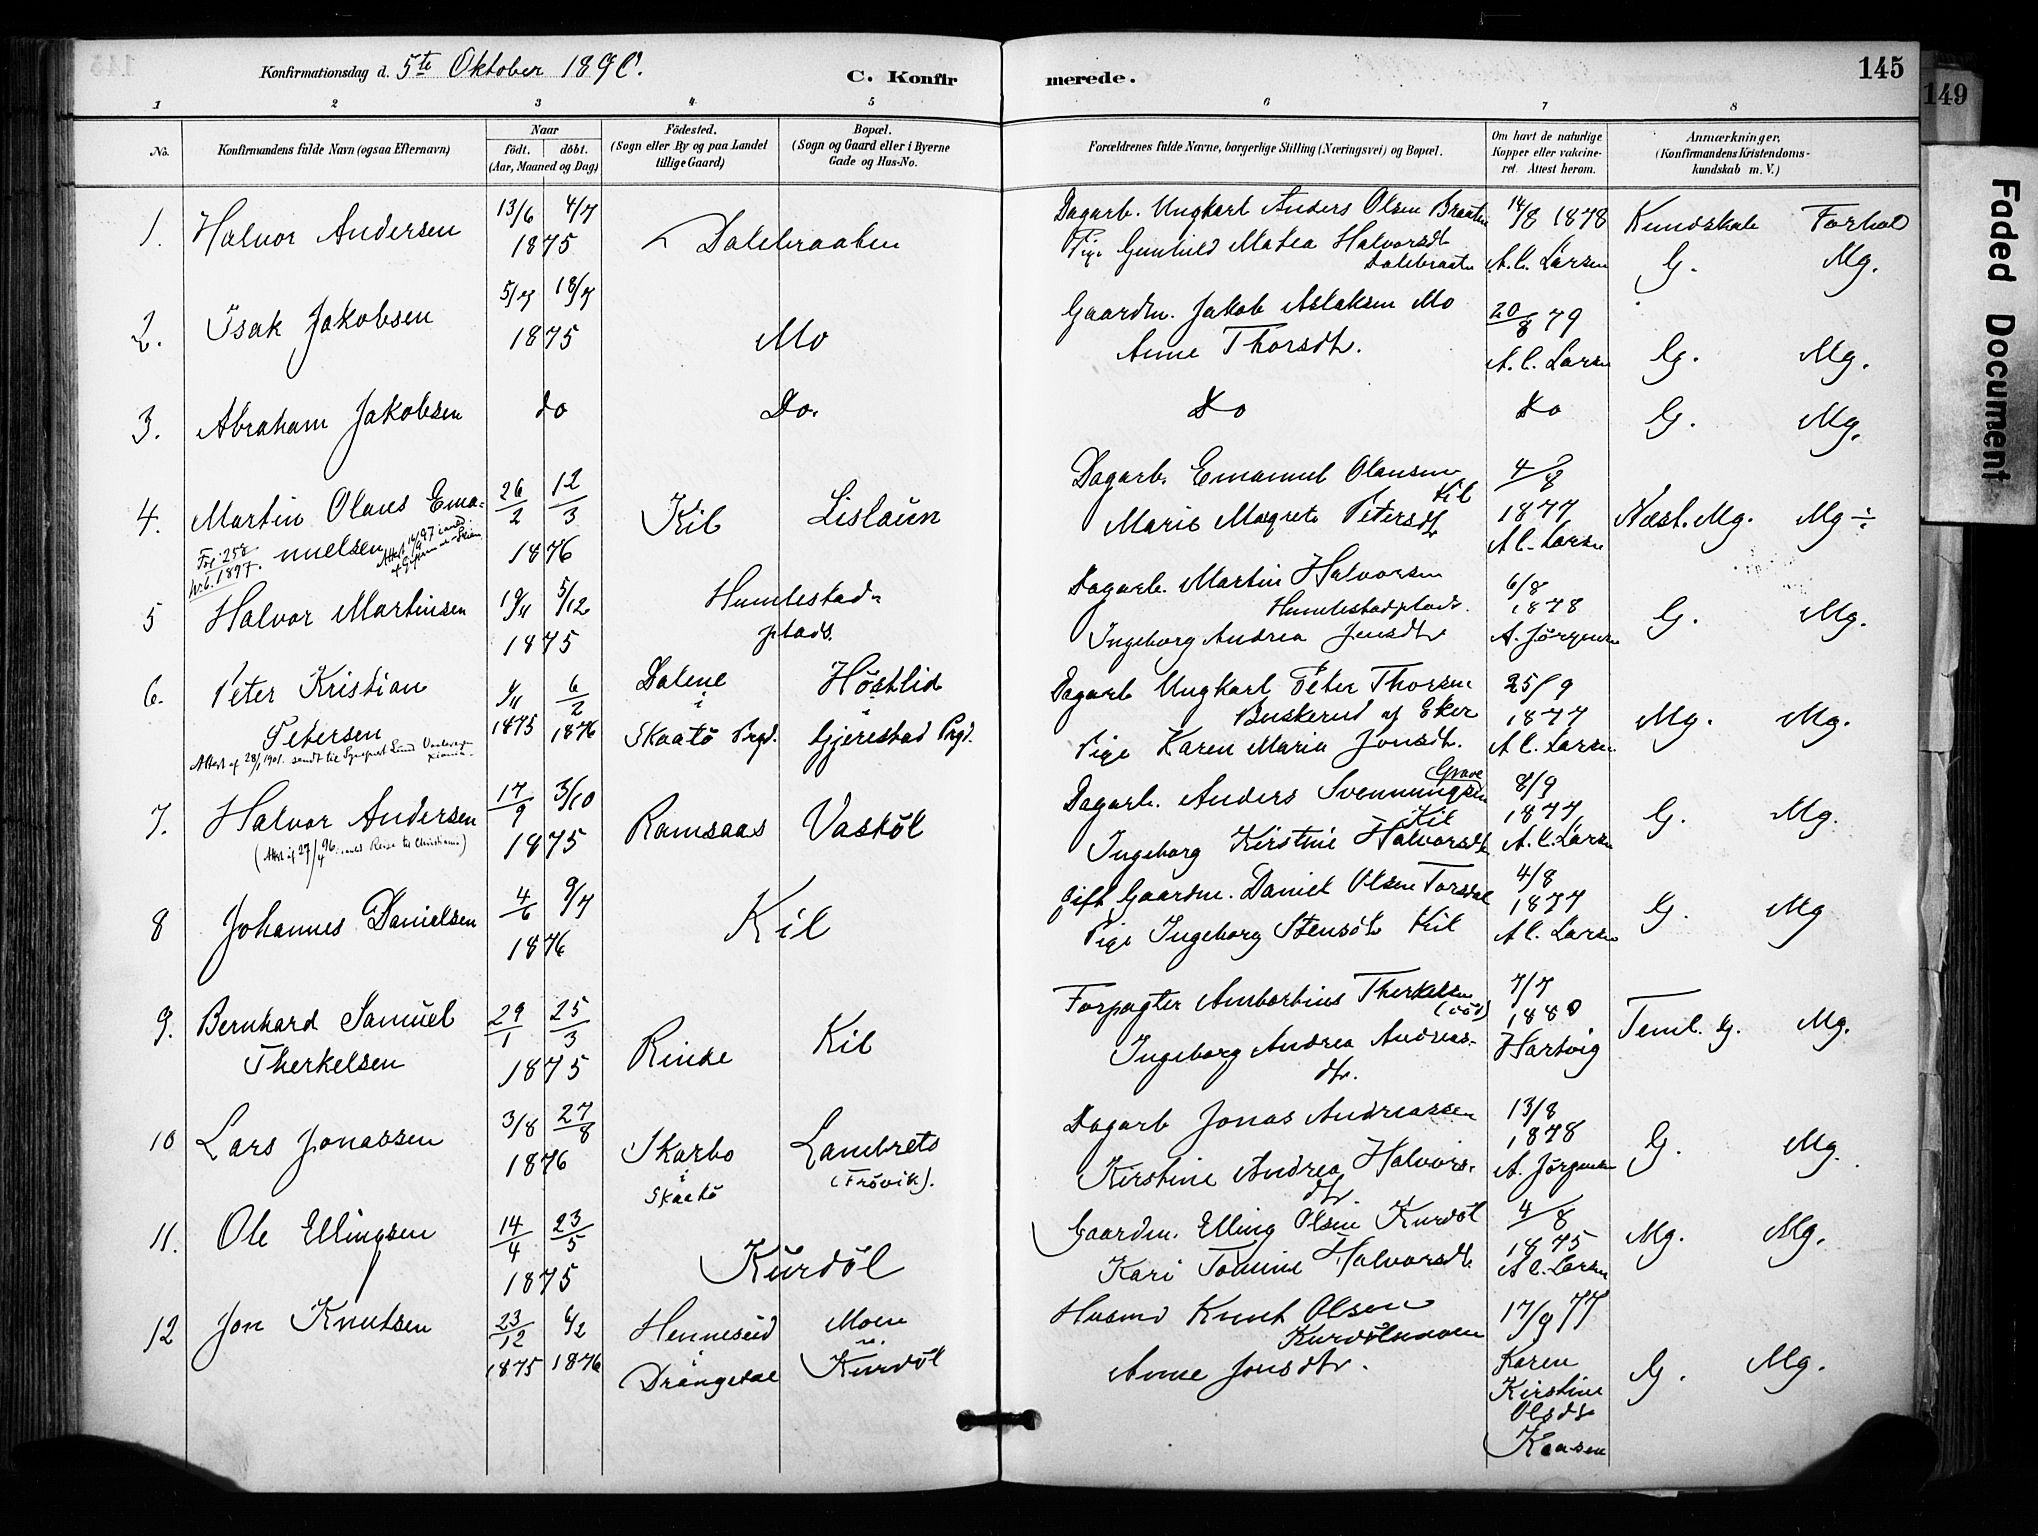 Konfirmationsdag d. 5te Oktober 1890.
C. Konfirmerede.
145
149
Faded Document
1 2 3 4 5 6 7 8
No.
Konfirmandens fulde Navn (ogsaa Efternavn)
Naar
født. døbt.
(Aar, Maaned og Dag)
Fødested.
(Sogn eller By og paa Landet
tillige Gaard)
Bopæl.
(Sogn og Gaard eller i Byerne
Gade og Hus-No.
Forældrenes fulde Navne, borgerlige Stilling (Næringsvei) og Bopæl.
Om havt de naturlige
Kopper eller vakcine-
ret. Attest herom.
Anmærkninger,
(Konfirmandens Kristendoms-
kundskab m. V.)
Kundskab Forhold
1. Halvor Andersen 13/6 4/7
1875
Dalebraaten
Dagarb. Ungkarl Anders Olsen Braaten
Pige Gunhild Matea Halvorsdt
Dalebraatn
14/8 1878
A. C. Larsen
G. Mg.
2. Isak Jakobsen 5/7 18/7
1875
Mo
Gaardm. Jakob Aslaksen Mo
Anne Thorsdt.
20/8 79
A. C. Larsen
G. Mg.
3. Abraham Jakobsen do Do. Do Do G. Mg.
4. Martin Olaus Ema-
nuelsen
26/2 12/3
1876
Kil Lislaün
Dagarb. Emanuel Olausen
Kil
Marie Magrete Petersdt
4/8
1877
A C. Larsen
Næst. Mg. Mg ÷
5 Halvor Martinsen 19/11 5/12
1875
Humlestad-
plads.
Dagarb. Martin Halvorsen
Humlestadplads.
Ingeborg Andrea Jensdt
6/8
1878
A. Jørgensen
G. Mg.
6. Peter Kristian
Petersen
6/2
1875 1876
Dalene
i
Skaatö Prgd.
Höstlid
i
Gjerestad Prgd.
Dagarb Ungkarl Peter Thorsen
Buskerud af Eker
Pige Karen Maria Jonsdt.
25/9
1877
A C. Larsen
Mg. Mg.
7. Halvor Andersen
17/9 3/10
1875
Ramsaas Vasköl
Dagarb. Anders Svenningsen
Kil
Ingeborg Kirstine Halvorsdt
8/9
1877
A. C. Larsen
G. Mg.
8 Johannes Danielsen 4/6 9/7
1876
Kil
gift Gaardm. Daniel Olsen Torsdal
Pige Ingeborg Stensdt Kil
4/8
1877
A C. Larsen
G. Mg
9. Bernhard Samüel
Therkelsen
29/1 25/3
1875
Rinde Kil
Forpagter Ambortius Therkelsen
(död)
Ingeborg Andrea Andreas-
dtr.
7/7
1880
Hartvig
Teml. G. Mg.
10 Lars Jonassen 3/8 27/8
1876
Skarbo
i
Skaatö
Lambrets
(Frövik).
Dagarb Jonas Andreassen
Kirstine Andrea Halvors-
dtr.
13/8
1878
A. Jørgensen
G. Mg.
11. Ole Ellingsen 14/4 23/5
1875
Kürdöl
Gaardm. Elling Olsen Kurdöl
Kari Tomine Halvorsdt
4/8
1875
A C. Larsen
Mg. Mg.
12 Jon Knutsen 23/12 6/2
1875 1876
Henneseid
i
Drangedal
Moen
u.
Kürdöl
Husmd Knut Olsen
Kurdölmoen
Anne Jonsdtr.
17/9 77
Karen
Kirstine
Olsdt
Kaasen
G. Mg.